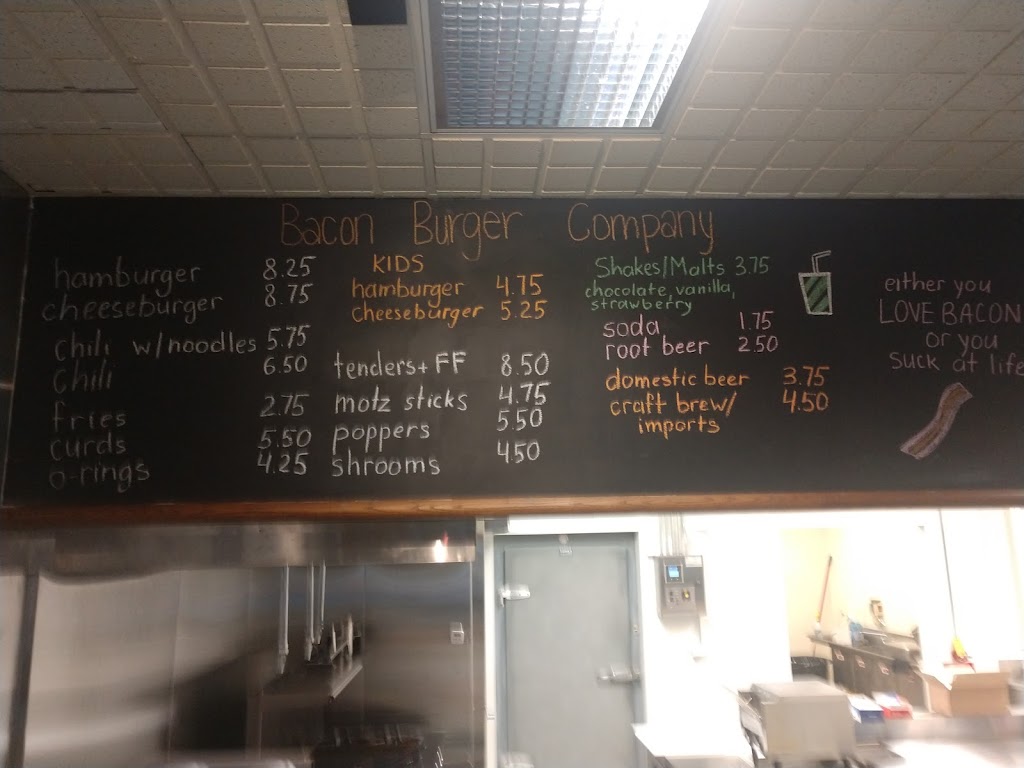 Bacon Burger Company
hamburger 8.25
cheeseburger 8.75
chili w/noodles 5.75
chili 6.50
fries 2.75
curds 5.50
o-rings 4.25
KIDS
hamburger 4.75
cheeseburger 5.25
tenders+FF 8.50
motz sticks 4.75
poppers 5.50
shrooms 450
Shakes/Malts 3.75
chocolate, vanilla,
strawberry
soda 1.75
root beer 2.50
domestic beer 3.75
craft brew/ 4.50
imports
either you
LOVE BACON
or you
suck at life